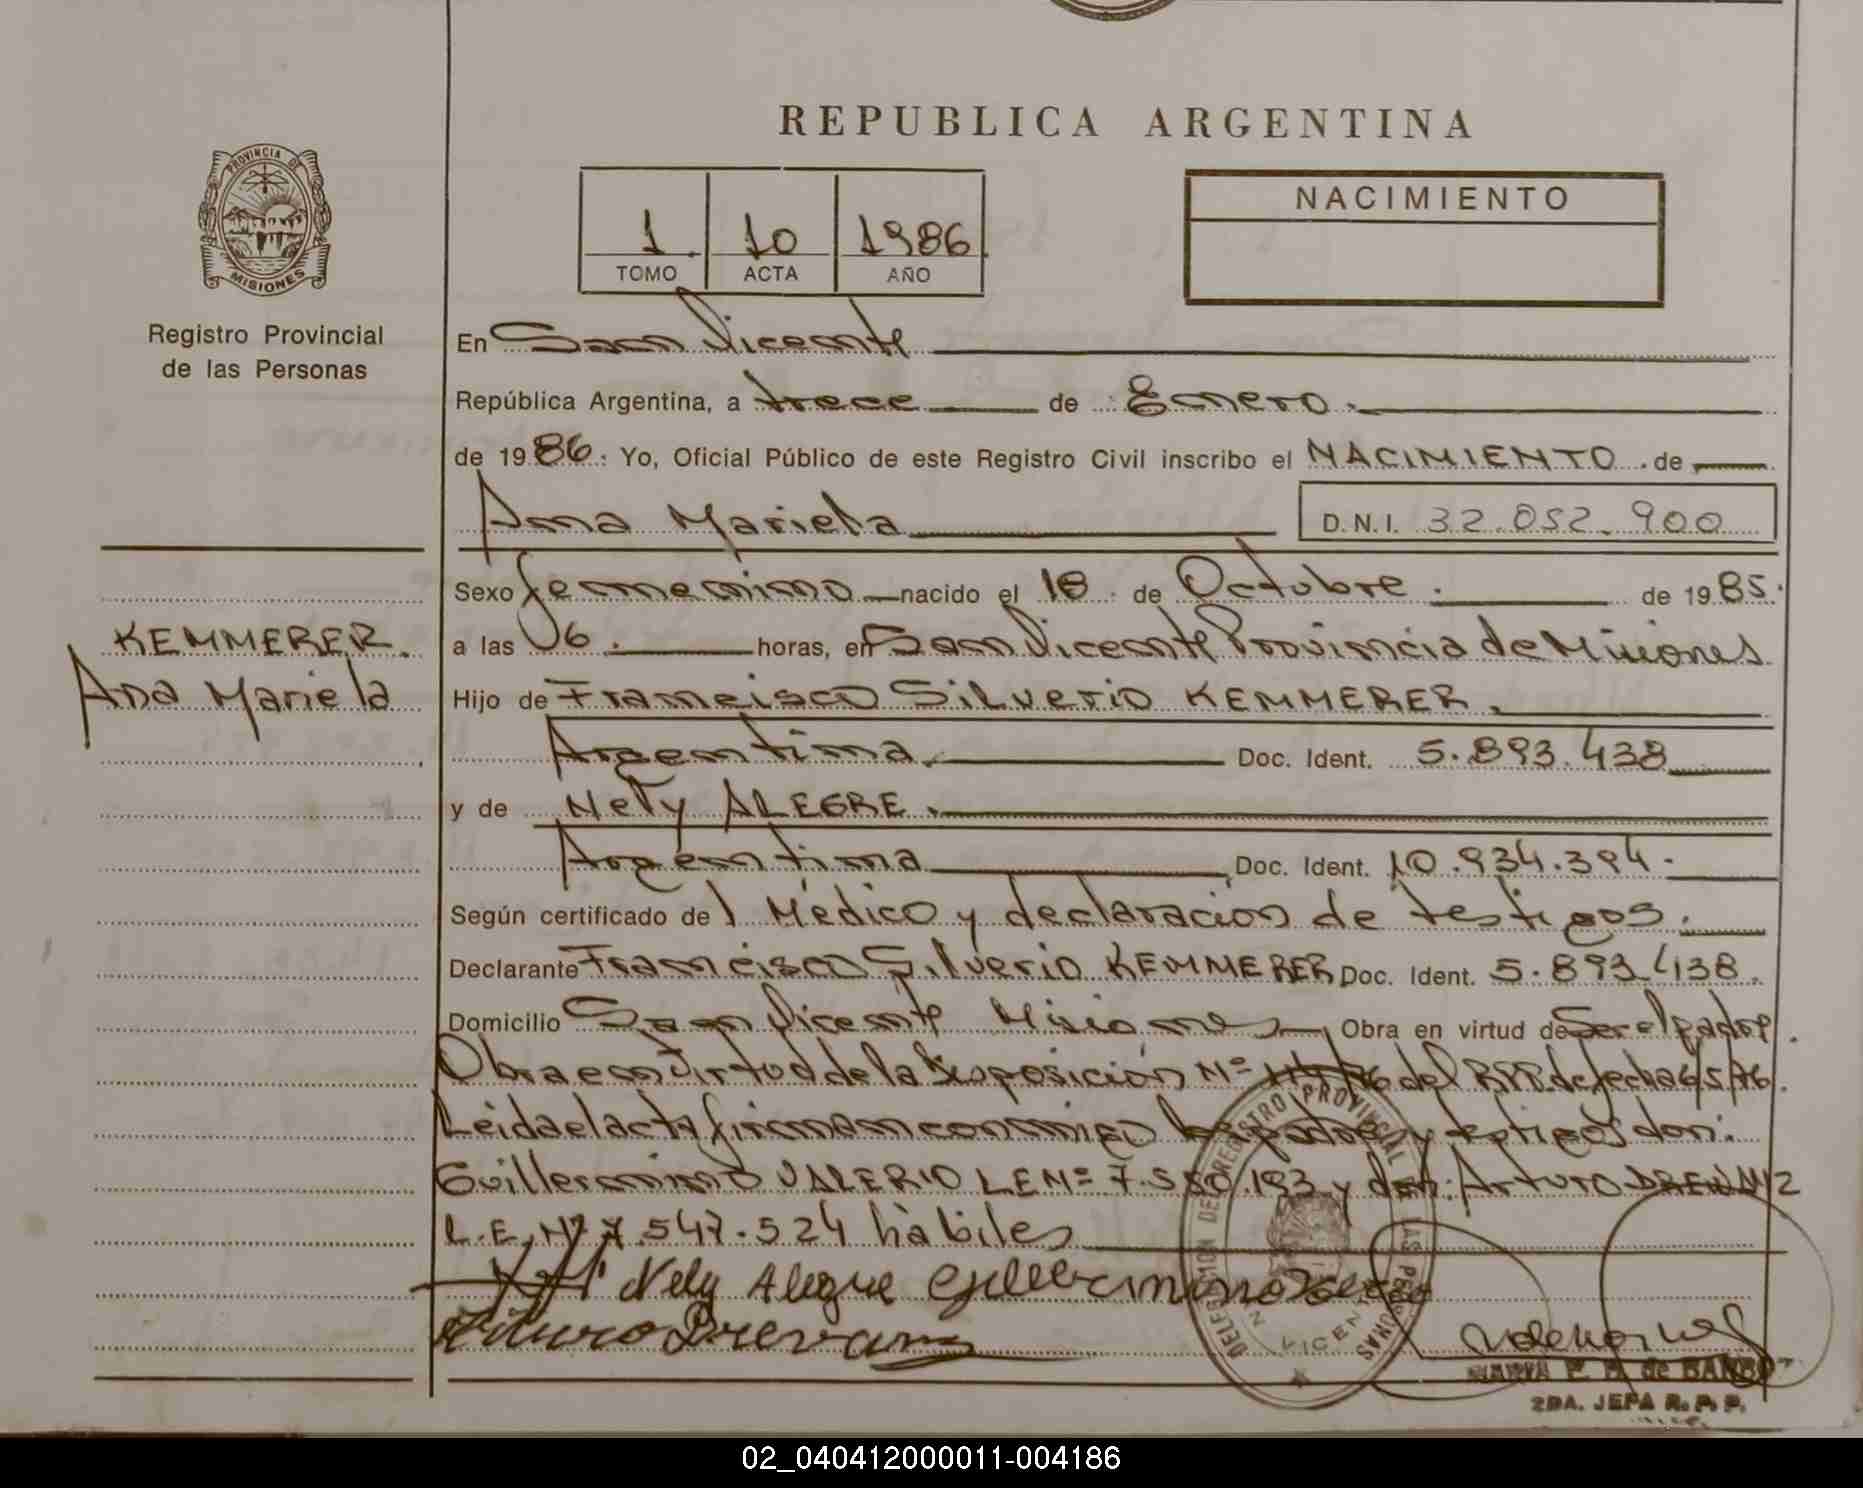 REPUBLICA ARGENTINA
PROVINCIA DE
MISIONES
Registro Provincial
de las Personas
1 10 1986
TOMO ACTA AÑO
NACIMIENTO
En San Vicente
República Argentina, a trece de Enero.
de 1986. Yo, Oficial Público de este Registro Civil inscribo el NACIMIENTO de
Ana Mariela
D.N.I. 32.052.900
KEMMERER.
Ana Mariela
Sexo femenino nacido el 18 de Octubre. de 1985.
a las 06. horas, en San Vicente Provincia de Misiones
Hijo de Francisco Silverio KEMMERER.
Argentina. Doc. Ident. 5.893.438
y de Nely ALEGRE.
Argentina Doc. Ident. 10.934.394.
Según certificado de 1 Médico y declaración de testigos.
Declarante Francisco Silverio KEMMERER Doc. Ident. 5.893.438.
Domicilio San Vicente Misiones Obra en virtud de Ser el padre.
Obra en virtud de la Disposición Nº del RPP de fecha 6/5/76.
Leida el acta firman conmigo y testigos don:
Guillermino VALERIO LE Nº 7.550.193 y don: Arturo
L.E. Nº 7.547.524 hàbiles
Nely Alegre Guillermino
Arturo
DELEGACION DE REGISTRO PROVINCIAL DE LAS PERSONAS
SAN VICENTE
de
2DA. JEFA R. P. P.
02_040412000011-004186